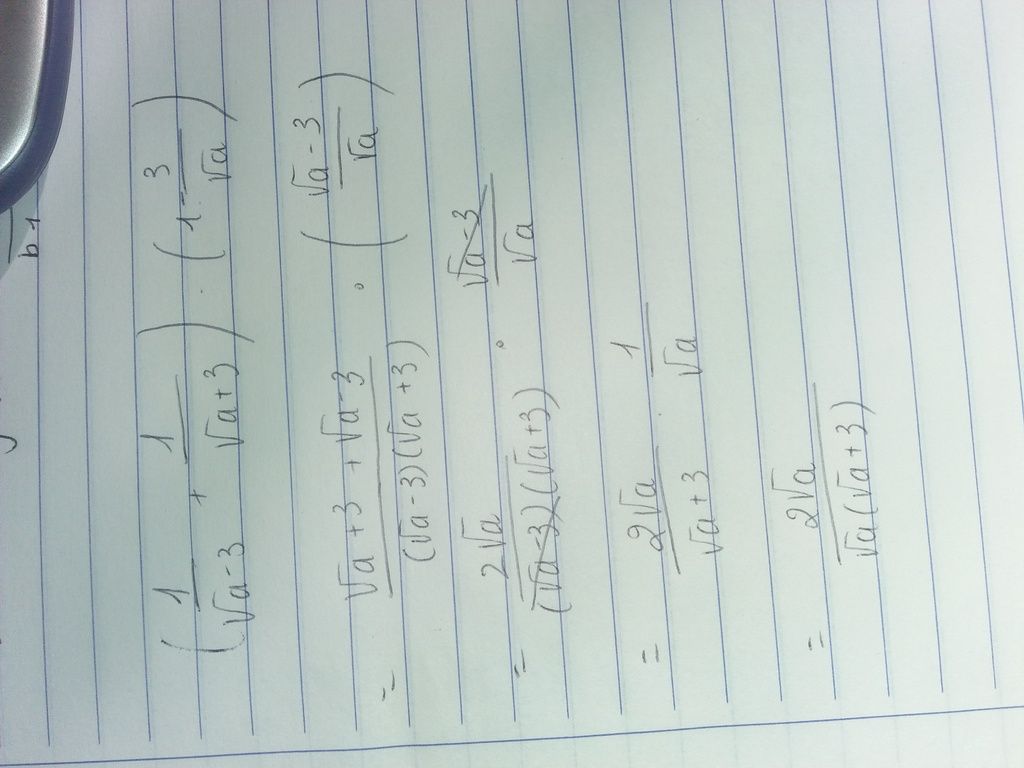 b 1
(1/(√a-3) + 1/(√a+3)) · (1 - 3/√a)
= (√a+3+√a-3)/((√a-3)(√a+3)) · ((√a-3)/√a)
= 2√a/((√a-3)(√a+3)) · (√a-3)/√a
= 2√a/(√a+3) · 1/√a
= 2√a/(√a(√a+3))